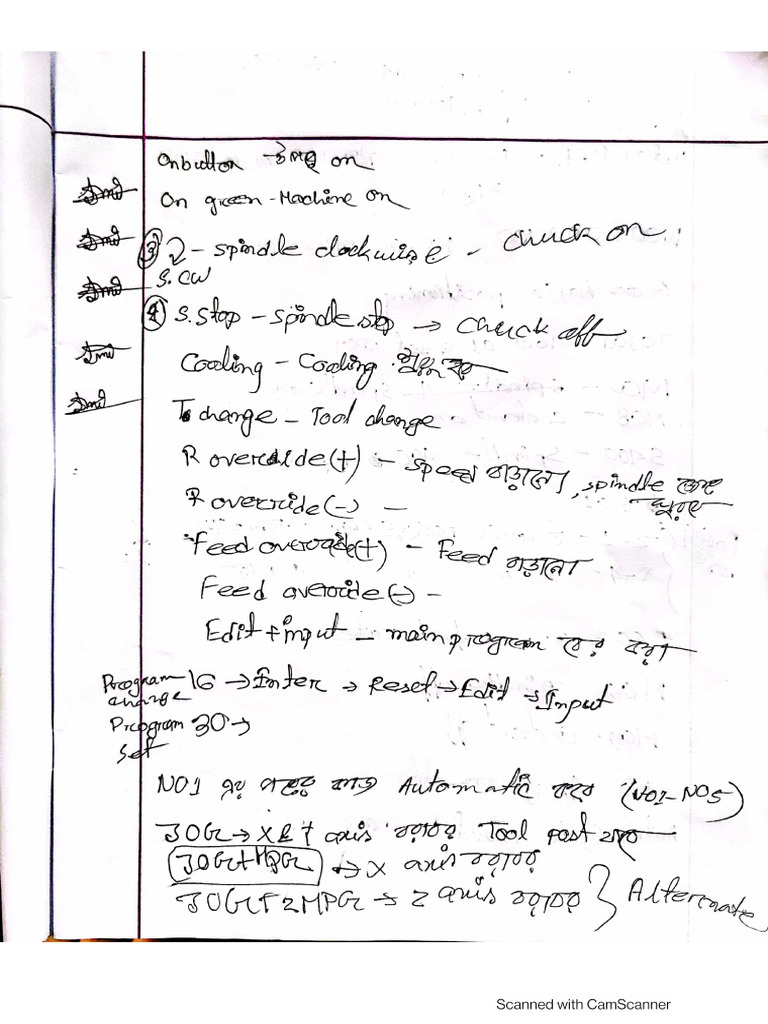 On button → on.
On green - Machine on
③ 2 - spindle clockwise - chuck on
S.CW
④ S.Stop - Spindle stop → chuck off
Cooling - Cooling শুরু হবে
T. change - Tool change
R override (+) - speed বাড়ানো, spindle জোরে ঘুরবে
R override (-) -
Feed override (+) - Feed বাড়ানো
Feed override (-) -
Edit + input - main program বের করা
Program change 16 → Enter → Reset → Edit → Input
Program set 30 →
NO1 এর পরের কাজ Automatic করে (NO1-NO5)
JOG → X & Z axis বরাবর Tool post
JOG + MPG → X axis বরাবর
JOG + ZMPG → Z axis বরাবর } Alternate
Scanned with CamScanner